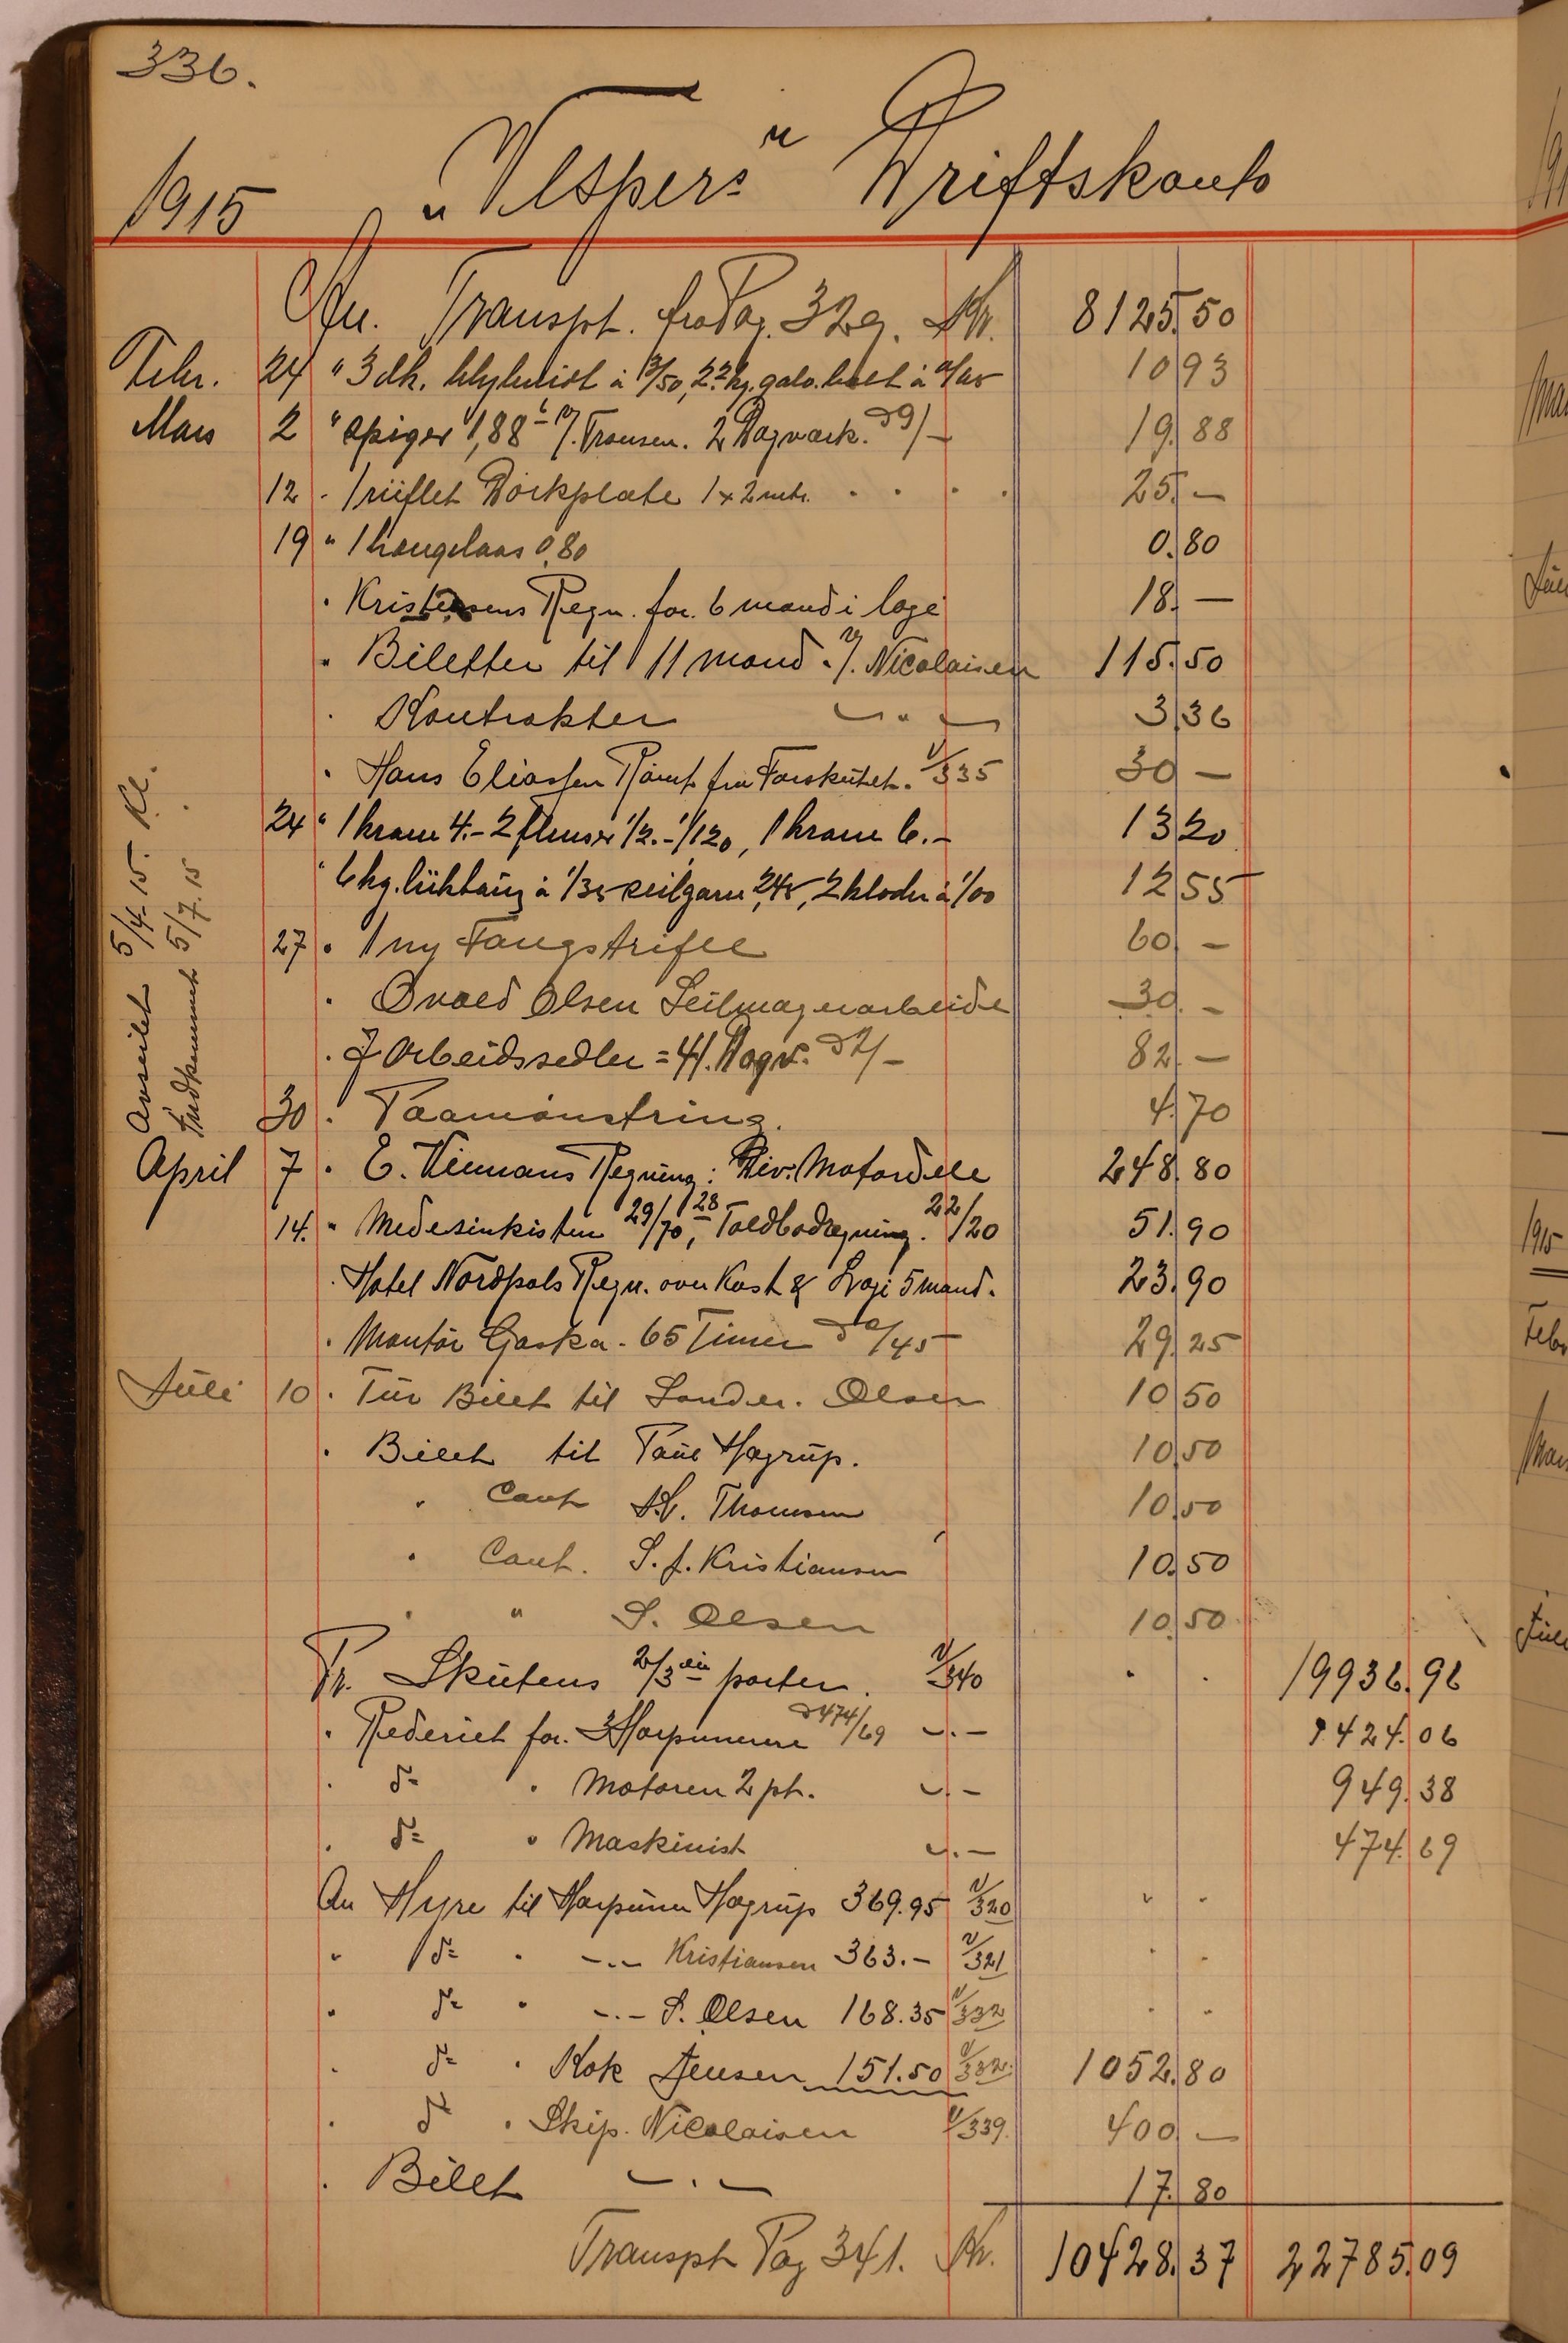 336.
1915 „Vespers" Driftskonto
An. Transpt. fra Pag. 329. Kr. 8125.50
Febr. 24 " 3 dk. à 3/50, 2² kg. galv. bolt à 10 93
Mars 2 " Spiger 1,88 Fransen. 2 Dagværk. à 9/- 19.88
12 - 1 riflet Dörkplate 1 x 2 mtr. . . . . 25.—
19 " 1 hængelaas 0,80 0.80
. Kristensens Regn. for 6 mand i logi 18.—
" Biletter til 11 mand. Nicolaisen 115.50
. Kontrakter —„— 3.36
. Hans Eliassen Römt fra Forskuttet. V/335 30 —
24 " 1 krane 4.- 2 flenser 1/2.- 1/120, 1 krane 6.- 13 20
" 6 kg. à 1/35 seilgarn 2,45, 2 kloder à 1/00 12 55
27 . 1 ny Fangstrifle 60. —
. Osvald Olsen Seilmagerarbeide 30. —
. 7 Arbeidssedler = 41. Dagv. à 2/- 82. —
30 . Paamönstring. 4.70
Avseilet 5/4. 15. Kl.
Indkommet 5/7. 15 .
April 7 . E. Viemans Regning: Div. Motordele 248.80
14. " Medesinkisten 29/70, Toldbodregning. 22/20 51.90
. Hotel Nordpols Regn. over Kost & Logi 5 mand. 23.90
. Montör Gaska. 65 Timer à 0/45 29.25
Juli 10 . Tur Bilet til Sander. Olsen 10 50
. Bilet til Paul Hagrup. 10.50
. Cant Thomsen 10.50
. Cant. S. J. Kristiansen 10.50
. " S. Olsen 10.50
Pr. Skutens 2/3 parter. V/340 . . 19936.96
. Rederiet for 3 Harpunerer à 474/69 —.— 1424.06
. do . Motoren 2 pt. —.— 949.38
. do . Maskinist —.— 474.69
An Hyre til Harpuner Hagrup 369.95 V/320 " "
" do . —.— Kristiansen 363.— V/321 . .
" do . —.— S. Olsen 168.35 V/332 . .
. do . Kok Jensen 151.50 V/332. 1052.80
. do . Skip. Nicolaisen V/339. 400.—
. Billet —.— 17.80
Transpt Pag 341. Kr. 10428.37 22785.09